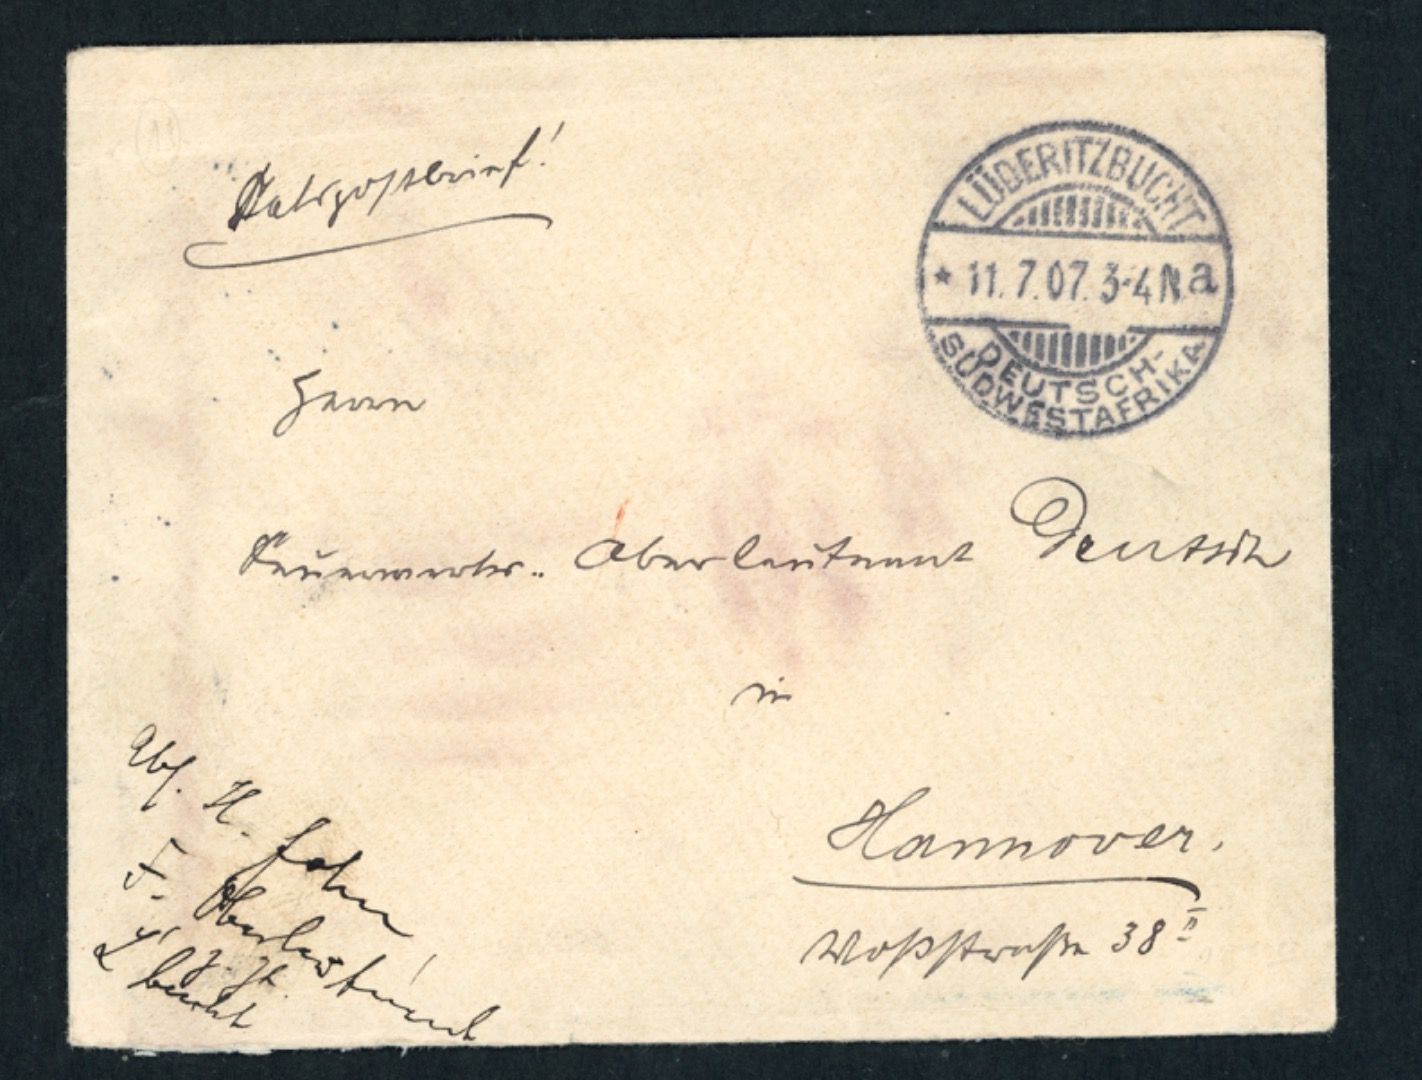 (11)
Feldpostbrief!
LÜDERITZBUCHT
* 11.7.07. 3-4 N. a
DEUTSCH-
SÜDWESTAFRIKA
Herrn
Feuerwerks-Oberleutnant Deutsch
in
Hannover.
Voßstraße 38 II
Abs. H. John
F. Oberleutnant
z. Zt.
L'bucht